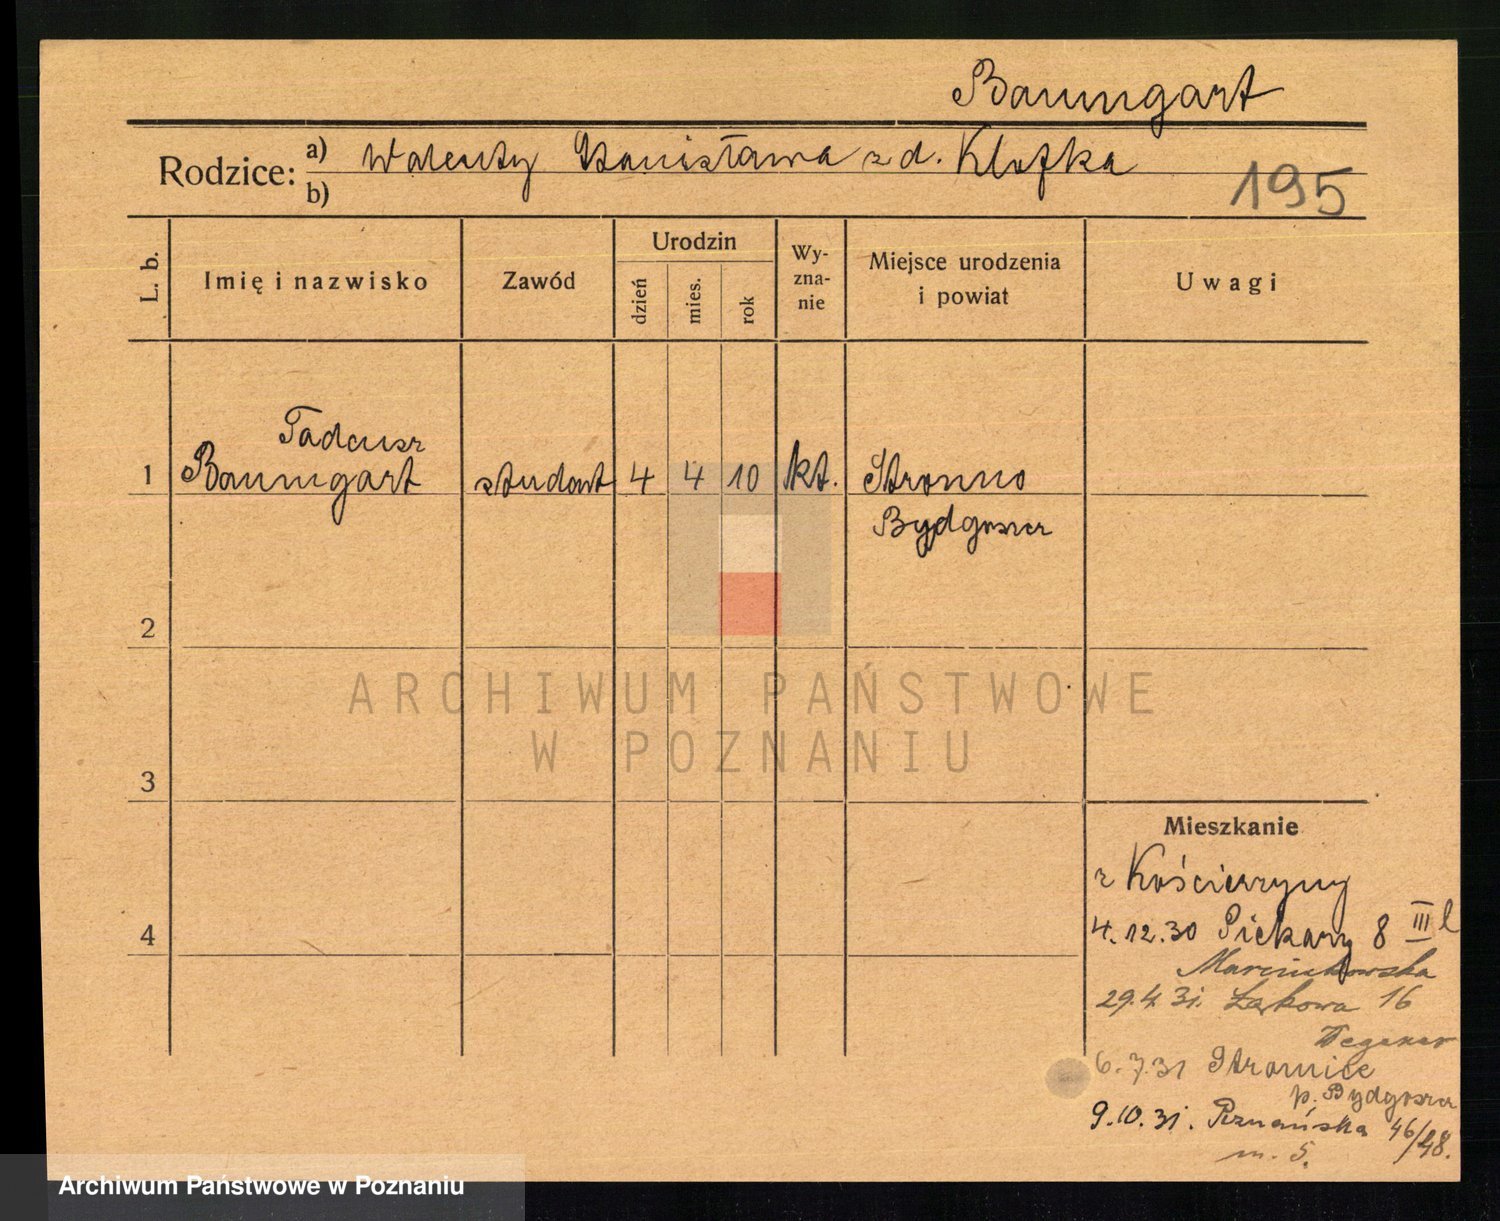 Baumgart
Rodzice: a) Walenty Stanisława z d. Klofka
b)
195
L. b.
Imię i nazwisko
Zawód
Urodzin
dzień
mies.
rok
Wy-
zna-
nie
Miejsce urodzenia
i powiat
Uwagi
Tadeusz
1 Baumgart student 4 4 10 kt. Stronno
Bydgoszcz
2
3
4
ARCHIWUM PAŃSTWOWE
W POZNANIU
Mieszkanie
z Kościerzyny
4.12.30 Piekary 8 III l
Marcinkowska
29.4.31. Łąkowa 16
6.7.31
p. Bydgoszcz
9.10.31. Poznańska 46/48.
m. 5.
Archiwum Państwowe w Poznaniu